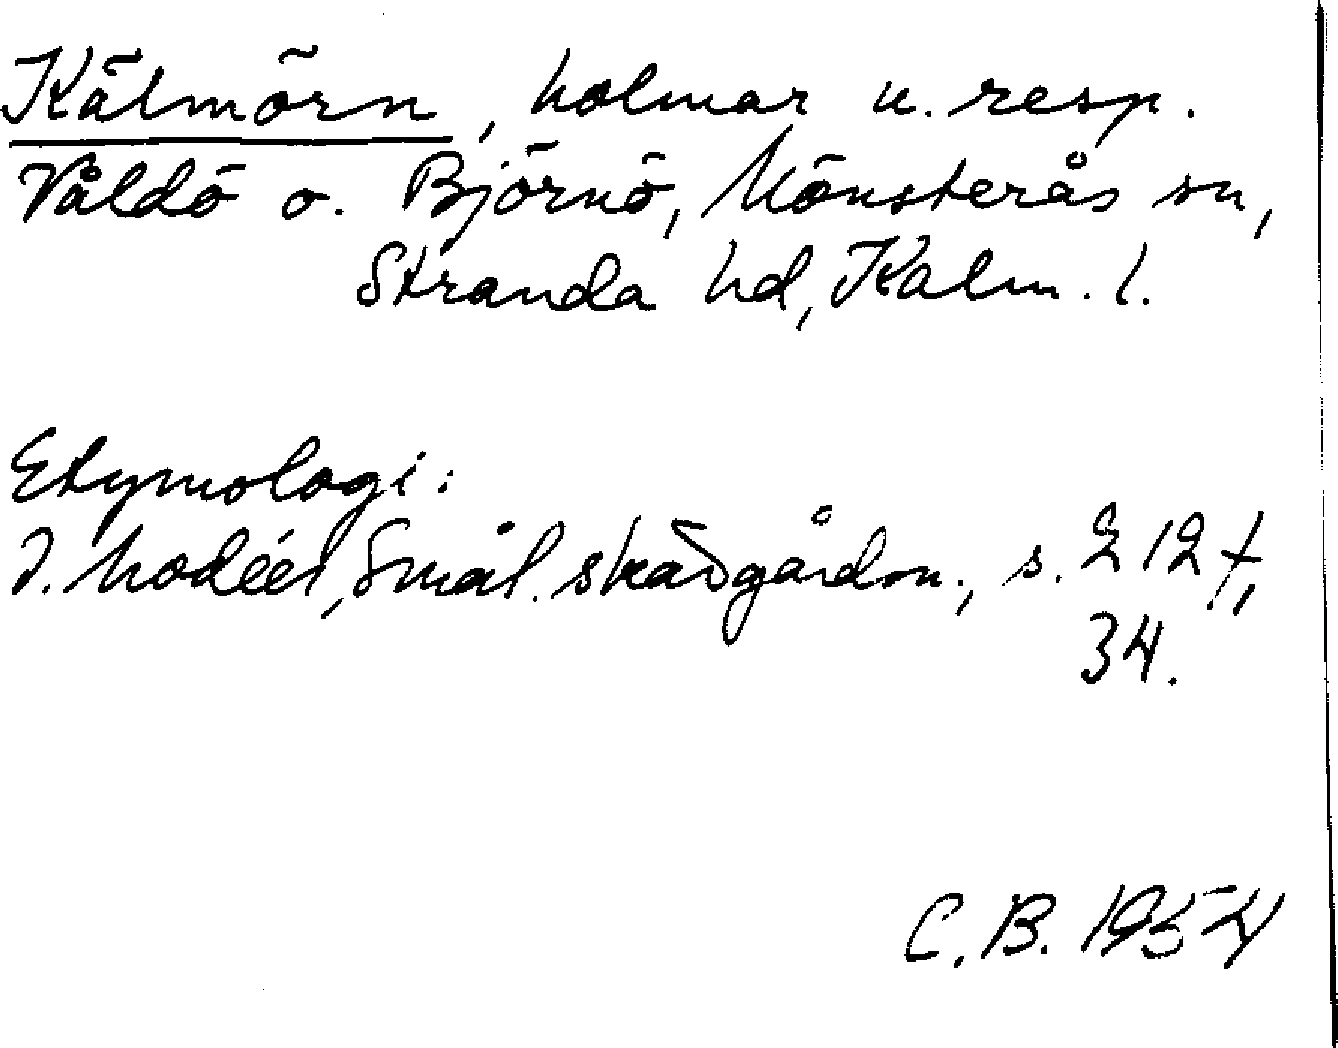 Kälmörn, holmar u. resp.
Våldö o. Björnö, Mönsterås sn,
Stranda hd, Kalm. l.
Etymologi:
I. Modéer, Smål. skärgårdsn., s. 212 f,
34.
C. B. 1954